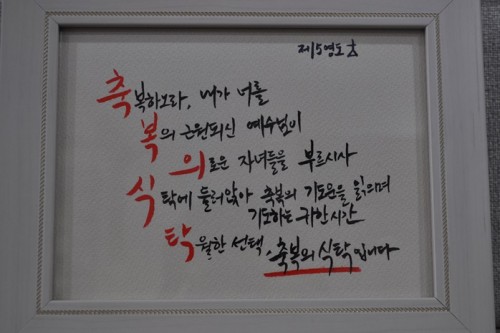 제15영도
축복하노라, 내가 너를
복의 근원되신 예수님이
의로운 자녀들을 부르시사
식탁에 둘러앉아 축복의 기도문을 읽으며
기도하는 귀한시간
탁월한 선택, 축복의 식탁입니다